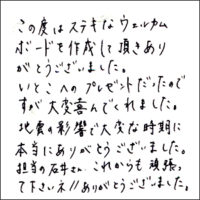 この度はステキなウェルカム
ボードを作成して頂きあり
がとうございました。
いとこへのプレゼントだったので
すが大変喜んでくれました。
地震の影響で大変な時期に
本当にありがとうございました。
担当の石井さん、これからも頑張っ
て下さいネ!!ありがとうございました。